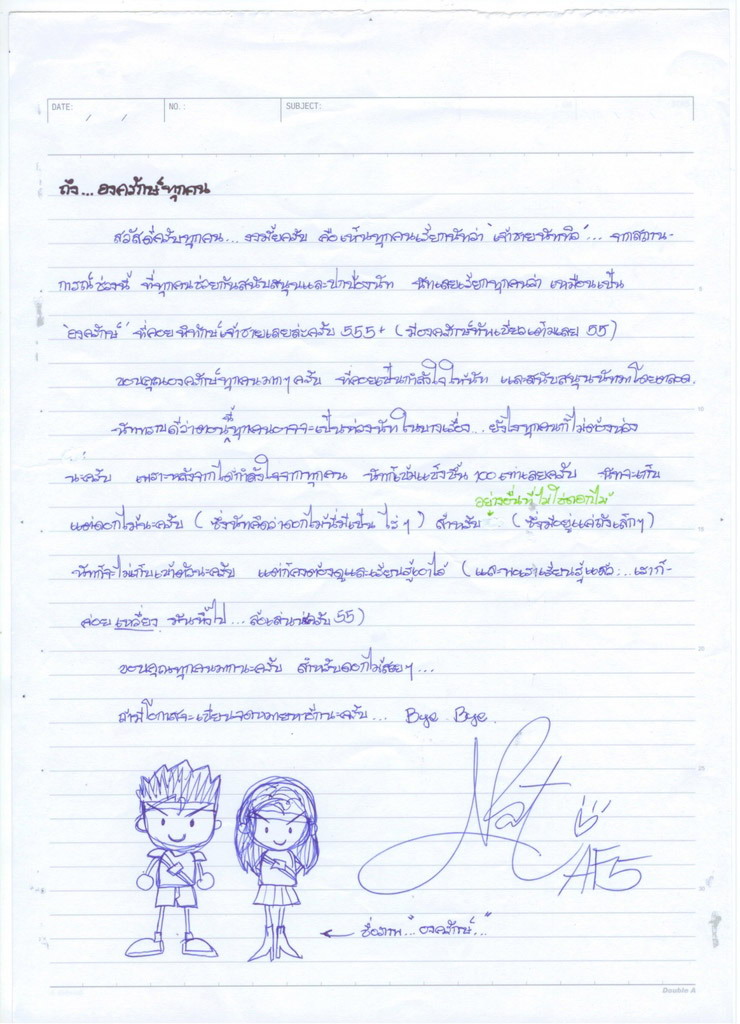 DATE: / / NO.: SUBJECT:
ถึง... องครักษ์ทุกคน
สวัสดีครับทุกคน... งงมั้ยครับ คือเห็นทุกคนเรียกนัทว่า "เจ้าชายนัททิว"... จากสถาน-
การณ์ช่วงนี้ ที่ทุกคนช่วยกันสนับสนุนและปกป้องนัท นัทเลยเรียกทุกคนว่า เหมือนเป็น
"องครักษ์" ที่คอยพิทักษ์เจ้าชายเลยล่ะครับ 555+ (มีองครักษ์กันเยอะเต็มเลย 55)
ขอบคุณองครักษ์ทุกคนมากๆครับ ที่คอยเป็นกำลังใจให้นัท และสนับสนุนนัทมาโดยตลอด.
นัททราบดีว่าตอนนี้ทุกคนอาจจะเป็นห่วงนัทในบางเรื่อง... ยังไงทุกคนก็ไม่ต้องห่วง
นะครับ เพราะหลังจากได้กำลังใจจากทุกคน นัทก็เข้มแข็งขึ้น 100 เท่าเลยครับ นัทจะเก็บ
อย่างอื่นที่ไม่ใช่ดอกไม้
แต่ดอกไม้นะครับ (ซึ่งนัทคิดว่าดอกไม้นี่มีเป็น ไร่ๆ) สำหรับ (ซึ่งมีอยู่แค่ถังเล็กๆ)
นัทก็จะไม่เก็บเข้าตัวนะครับ แต่ก็คงต้องดูและเรียนรู้เอาไว้ (และพอเราเรียนรู้แล้ว... เราก็-
ค่อย เหวี่ยง มันทิ้งไป... ล้อเล่นครับ 55)
ขอบคุณทุกคนมากนะครับ สำหรับดอกไม้สวยๆ...
ถ้ามีโอกาสจะเขียนจดหมายหาอีกนะครับ... Bye Bye.
Nat
AF5
← ชื่อภาพ "องครักษ์..."
Double A